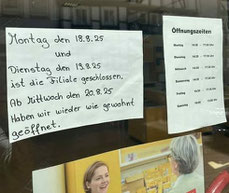 Montag den 18.8.25
und
Dienstag den 19.8.25
ist die Filiale geschlossen.
Ab Mittwoch den 20.8.25
Haben wir wieder wie gewohnt
geöffnet.
Öffnungszeiten
Montag
Dienstag
Mittwoch
Donnerstag
Freitag
Samstag